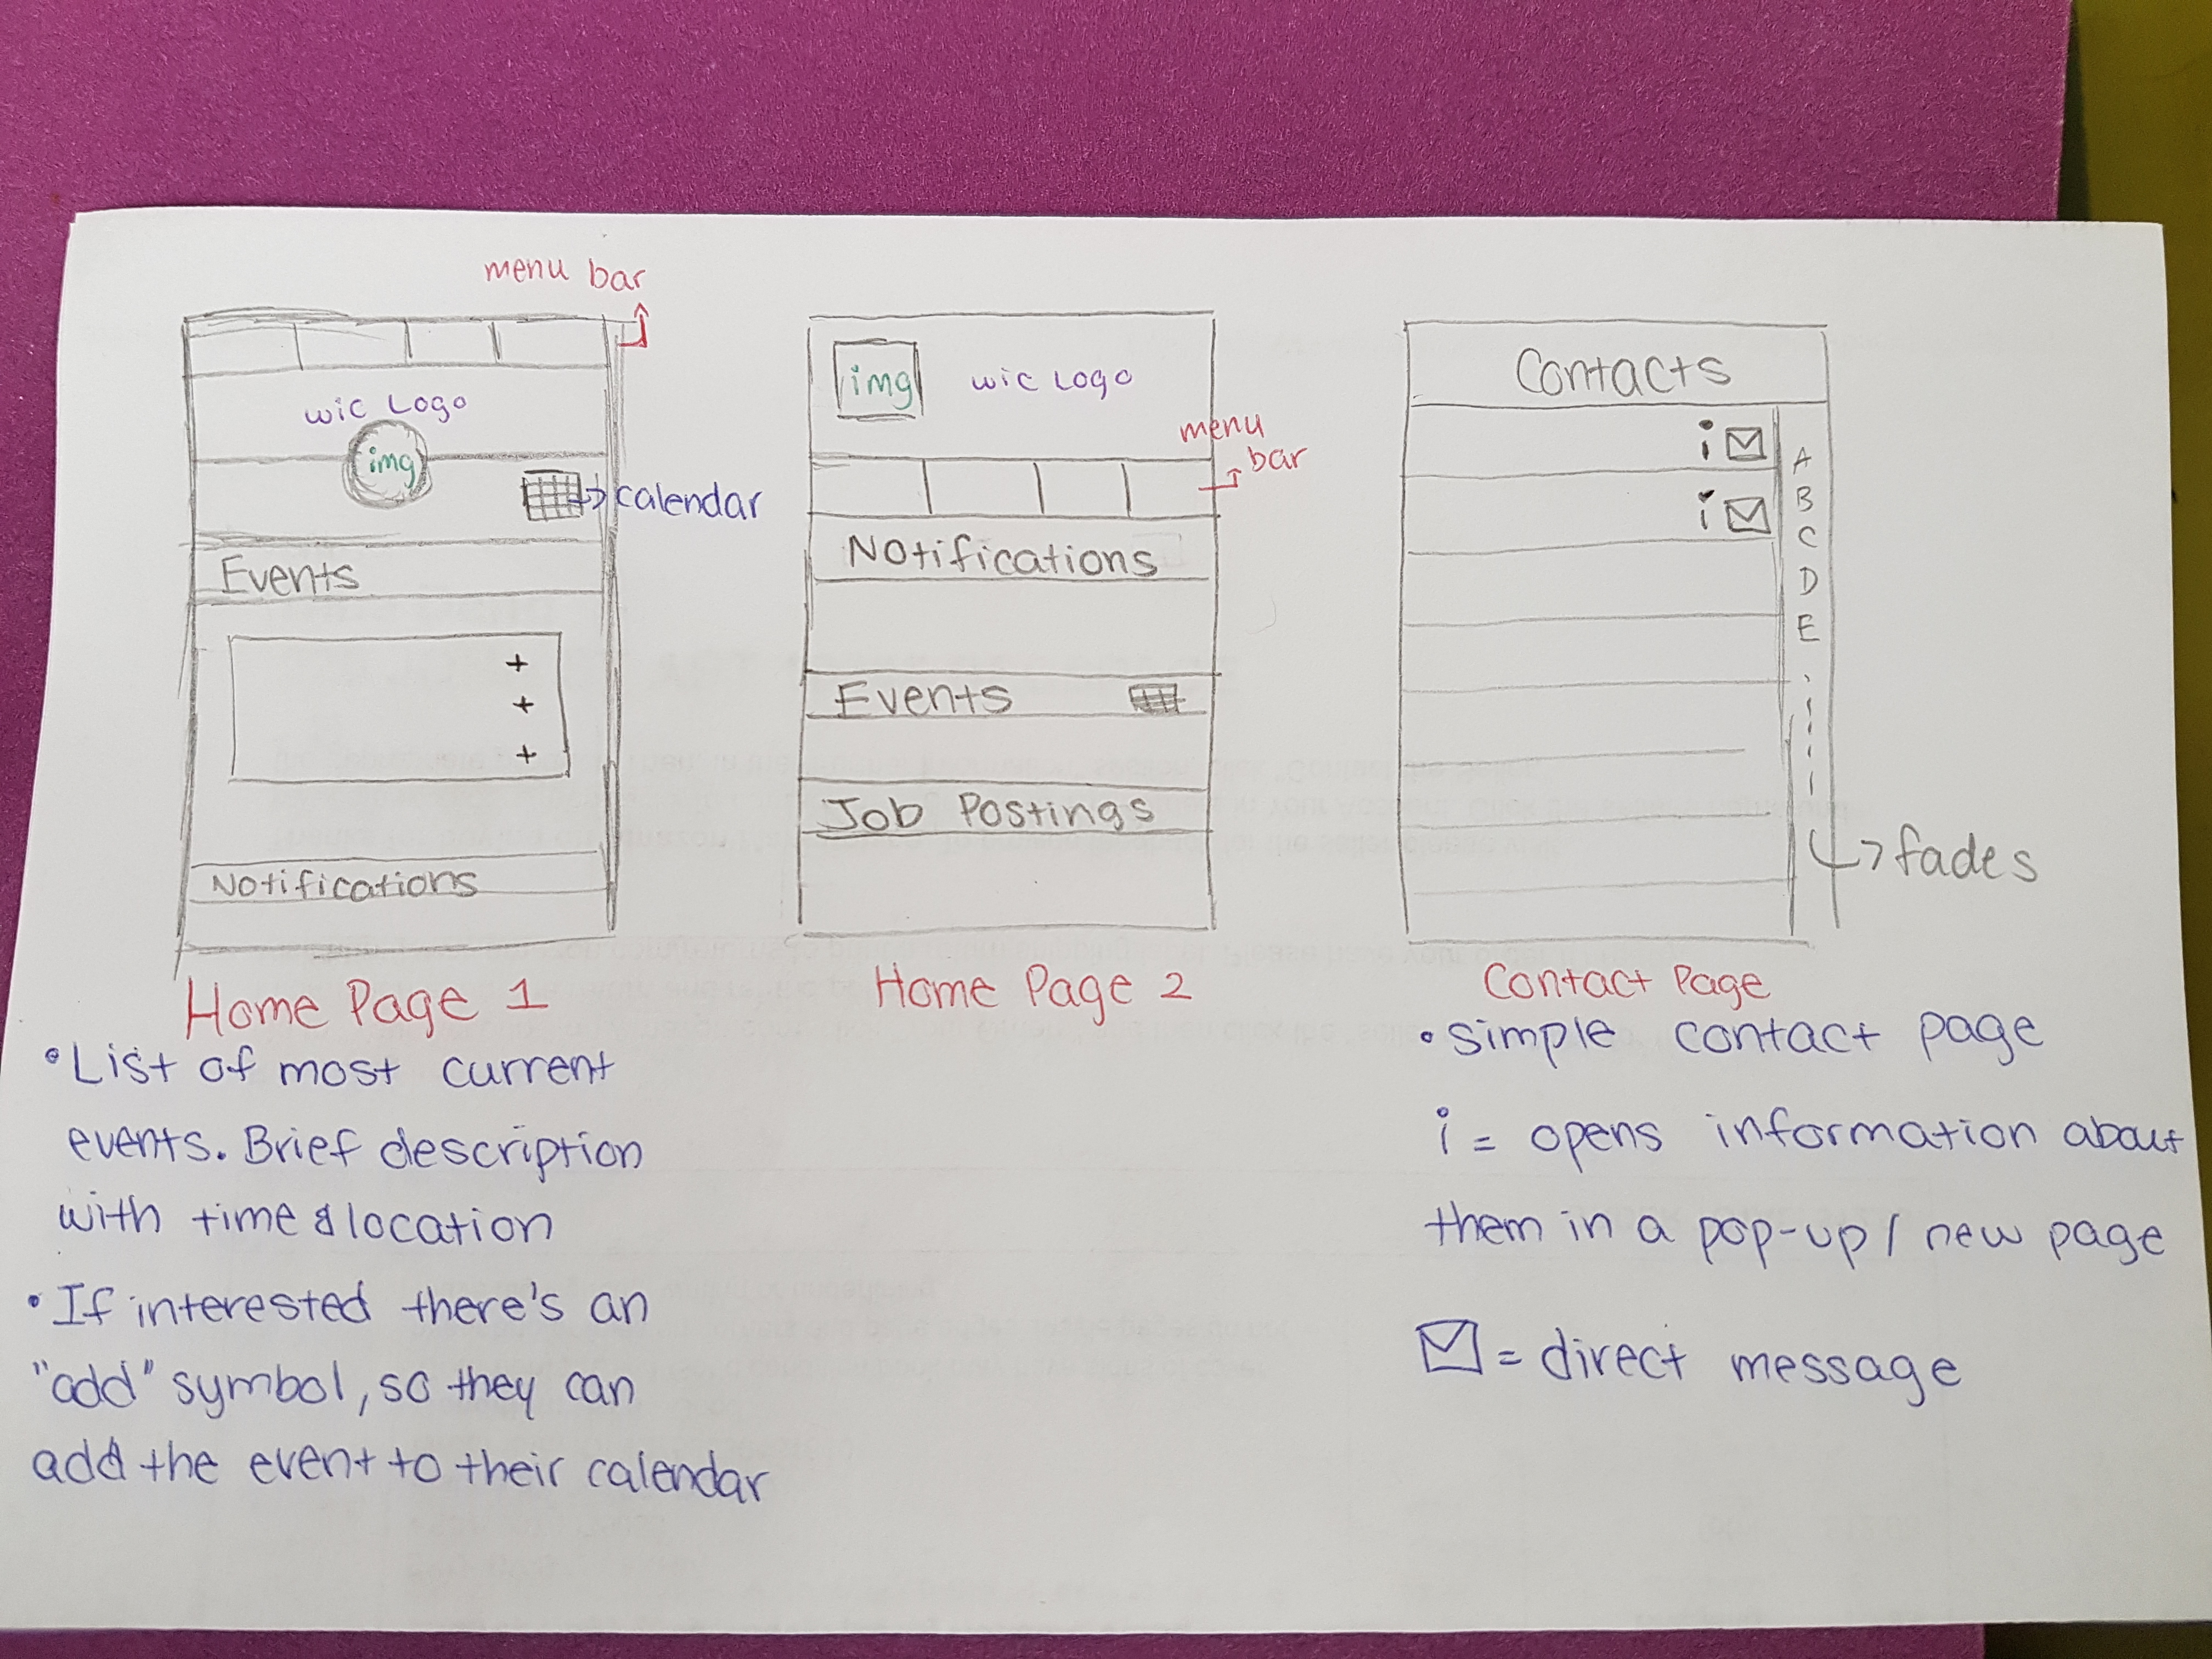 menu bar
wic Logo
img
calendar
Events
+
+
+
Notifications
Home Page 1
• List of most current
events. Brief description
with time & location
• If interested there's an
"add" symbol, so they can
add the event to their calendar
img
wic Logo
menu
bar
Notifications
Events
Job Postings
Home Page 2
Contacts
i
i
A
B
C
D
E
fades
Contact Page
• simple contact page
i = opens information about
them in a pop-up / new page
= direct message